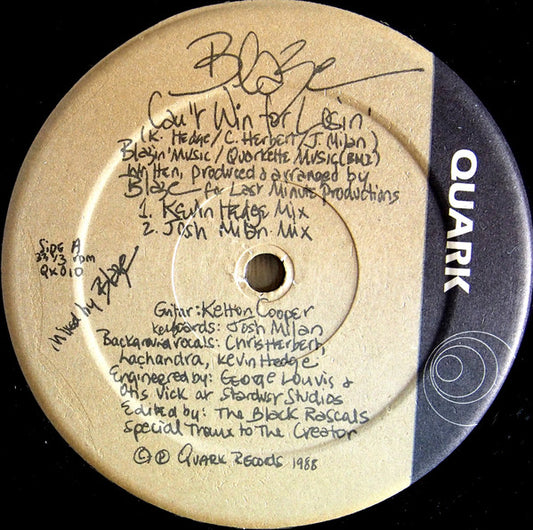 Blaze
Can't Win for Losin'
(K. Hedge/C. Herbert/J. Milan)
Blazin' Music/Quarkette Music (BMI)
written, produced & arranged by
Blaze for Last Minute Productions
1. Kevin Hedge Mix
2. Josh Milan Mix
Side A
33 1/3 rpm
QK010
mixed by Blaze
QUARK
Guitar: Kelton Cooper
Keyboards: Josh Milan
Background vocals: Chris Herbert,
Lachandra, Kevin Hedge
Engineered by: George Louvis &
Otis Vick at Stardust Studios
Edited by: The Black Rascals
Special Tranx to The Creator
© ℗ Quark Records 1988